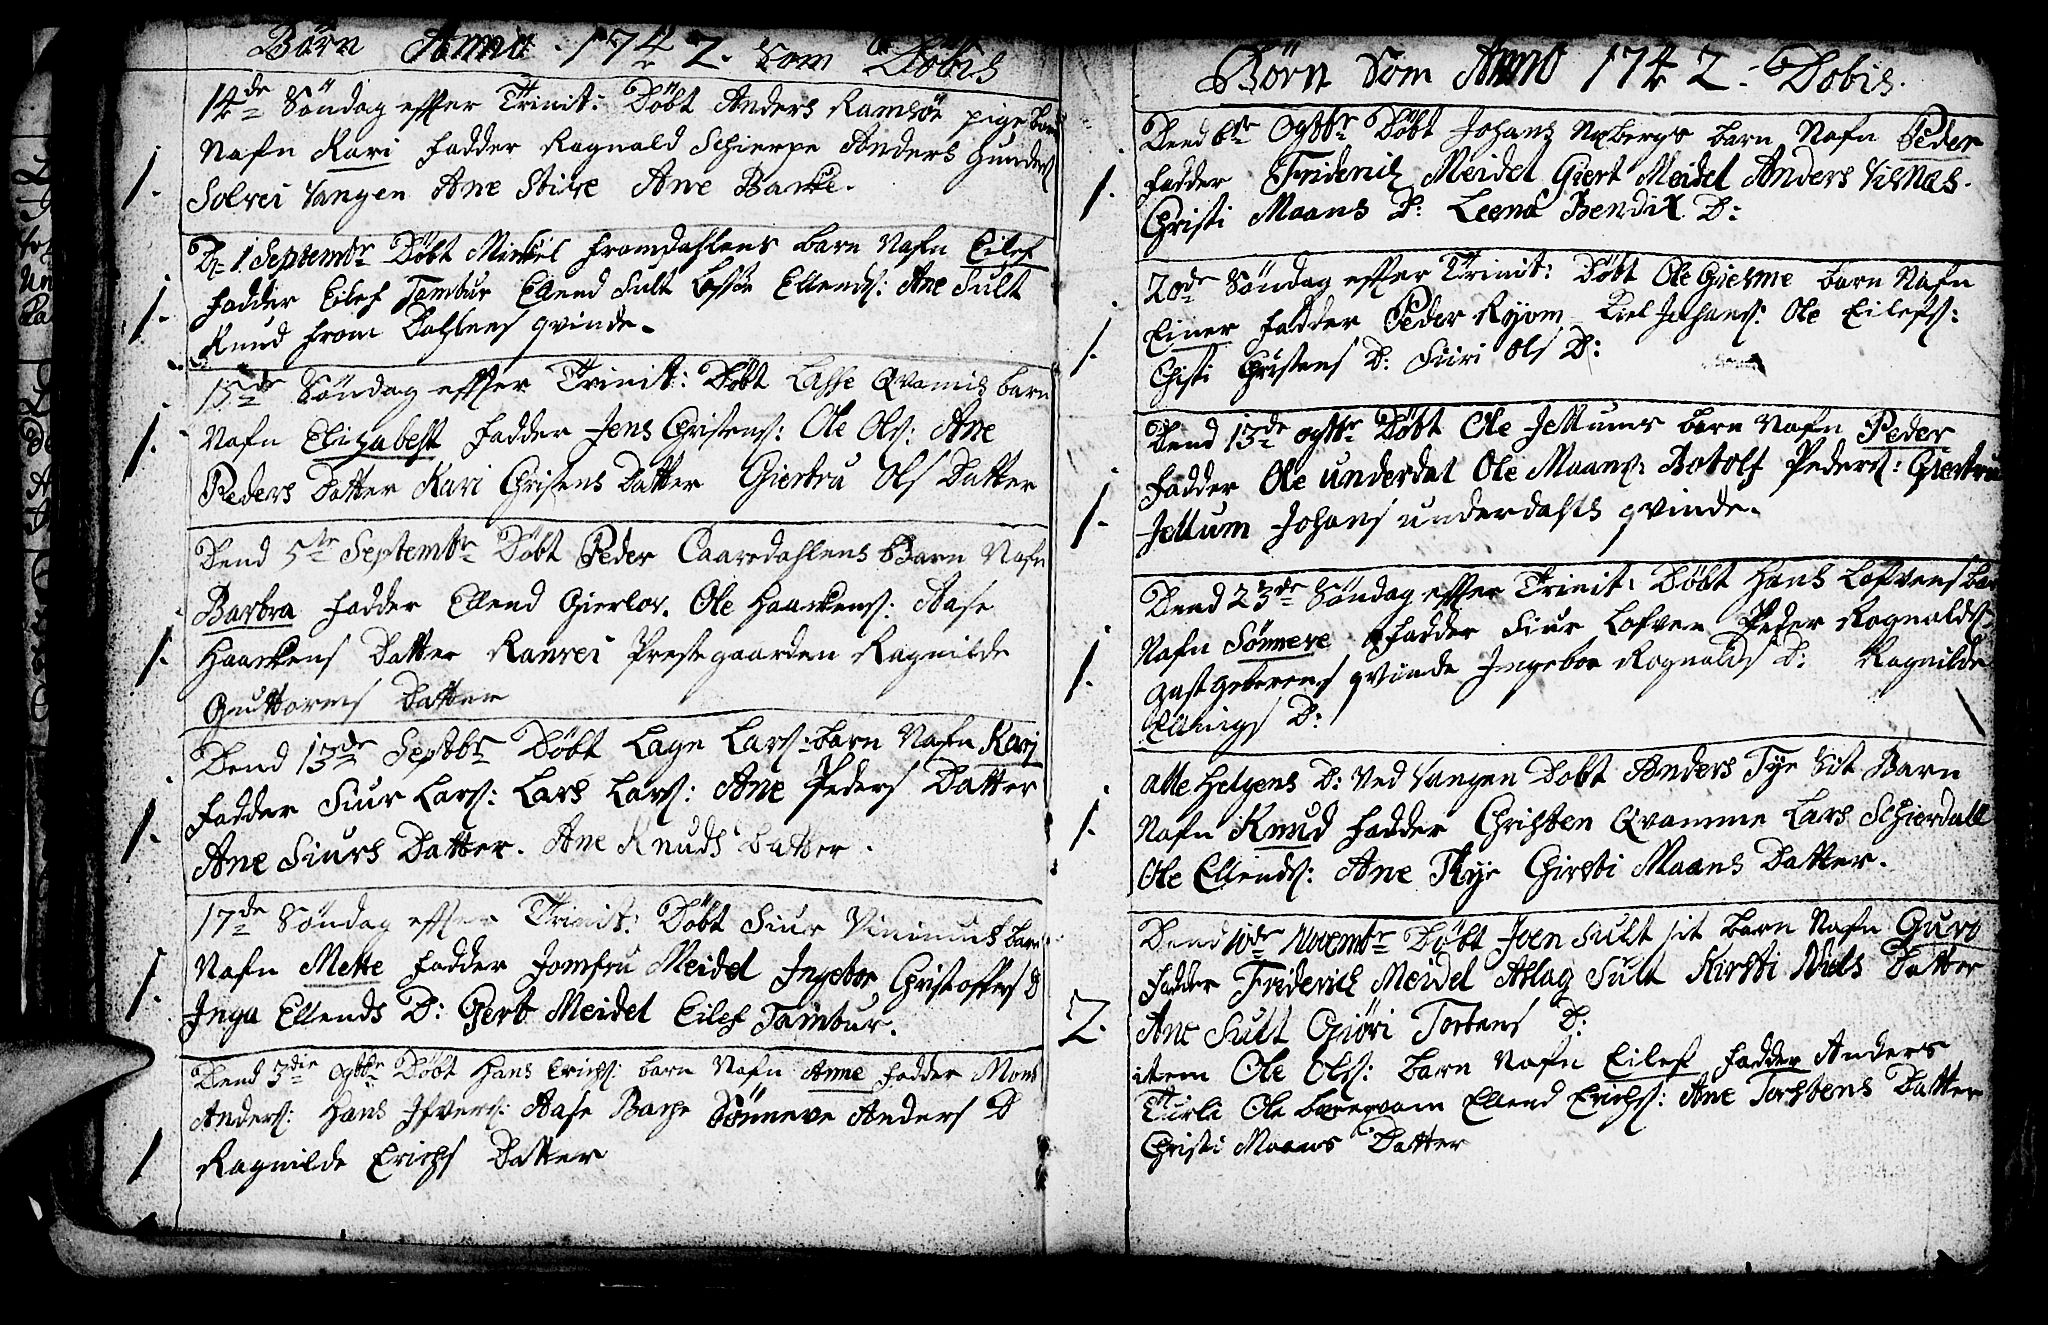 Børn Anno 1742. som Døbis
14de Søndag effter Trinit: Døbt Anders Ramsøe pige barn
1. Nafn Kari fadder Ragnald Schierpe Anders Gunders
Solvei Vangen Ane Stive Ane Barke.
D 1 Septembr Døbt Mickel Fromdahlens barn Nafn Eilef
1. fadder Eilef Tambur Ellend Sult Ellends: Ane Sult
Knud From Dahlens qvinde.
15de Søndag effter Trinit: Døbt Lasse Qvamis barn
1. Nafn Elizabeht fadder Jens Christens: Ole Ols: Ane
Peders Datter Kari Christens Datter Giertru Ols Datter
Dend 5te Septembr Døbt Peder Caarsdahlens Barn Nafn
Barbra fadder Ellend Gierlov. Ole Haackens: Aase
1. Haackens Datter Ranvei Prestegaarden Ragnilde
Guttorms Datter
Dend 13de Septbr Døbt Lage Lars: barn Nafn Kari
1. fadder Siur Lars: Lars Lars: Ane Peders Datter
Ane Siurs Datter. Ane Knuds Datter.
17de Søndag effter Trinit: Døbt Siur Vinimuls barn
1. Nafn Mette fadder Jomfru Meidel Ingebor Christoffers D
Inga Ellends D: Gert Meidel Eilef Tambur.
Dend 3die Ogtbr Døbt Hans Erichs: barn Nafn Anne fadder Mons
Anders: Hans Ifvers: Aase Barpe Sønneve Anders D
1 Ragnilde Erichs Datter
Børn som Anno 1742. Dobis.
Dend 6te Ogtbr Døbt Johans Næbergs barn Nafn Peder
1. fadder Friderich Meidel Giert Meidel Anders Visnas.
Christi Maans D: Leena Bendix D:
20de Søndag effter Trinit: Døbt Ole Giesme barn Nafn
1. Einer fadder Peder Ryom Johans: Ole Eilefs:
Chisti Christens D: Siiri Ols D:
Dend 13de ogtbr Døbt Ole Jettums barn Nafn Peder
1. fadder Ole Underdal Ole Maans: Botolf Peders: Giertru
Jettum Johans underdahls qvinde.
Dend 23de Søndag effter Trinit: Døbt Hans Lofvens barn
1. Nafn Sønneve fadder Siur Lofven Peder Ragnalds
gastgeberens qvinde Ingebor Rognalds D: Ragnilde
Ellings D:
Alle Helgens D: ved Vangen Dobt Anders Tye sit Barn
1. Nafn Knud fadder Christen Qvamme Lars Schierdall
Ole Ellends: Ane Tye Chirsti Maans Datter.
Dend 10de Novembr Døbt Joen Sult sit barn Nafn Guro
fadder Friderich Meidel Aslag Sult Kirsti Niels Datter
2. Ane Sult Giøri Tostens D:
item Ole Ols: barn Nafn Eilef fadder Anders
Turli Ole Ellend Erichs: Ane Torstens Datter
Christi Maans Datter